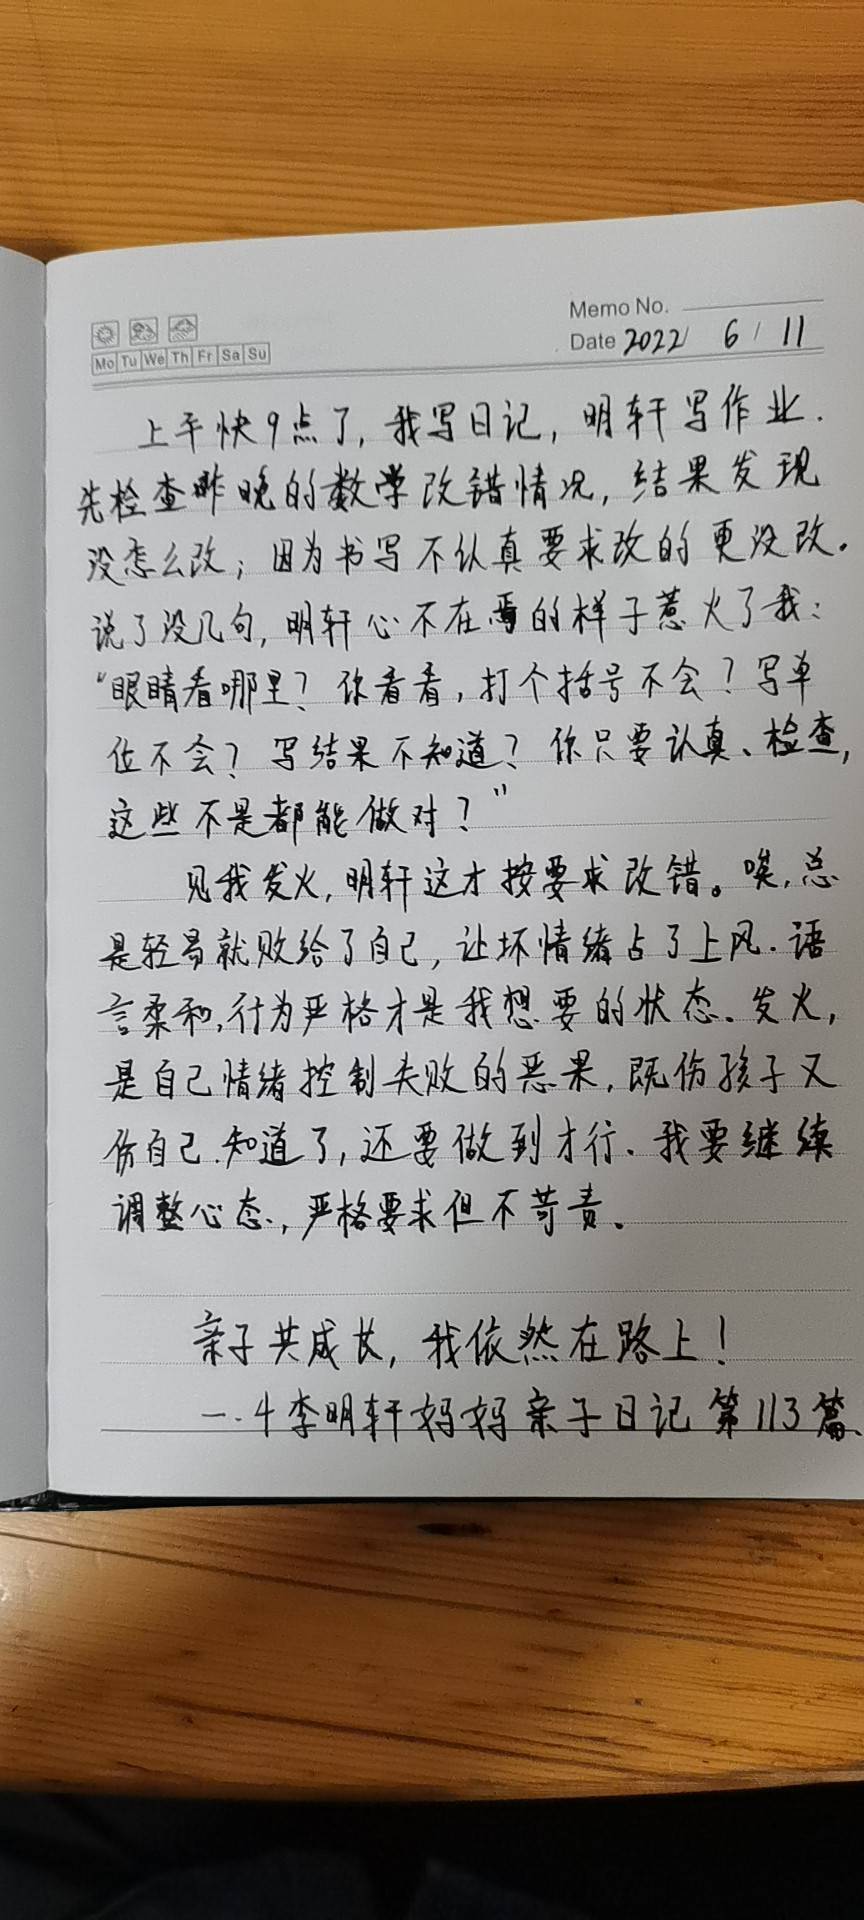 Memo No.
Date 2022 / 6 / 11
Mo Tu We Th Fr Sa Su
上午快9点了,我写日记,明轩写作业.
先检查昨晚的数学改错情况,结果发现
没怎么改;因为书写不认真要求改的更没改。
说了没几句,明轩心不在焉的样子惹火了我:
“眼睛看哪里?你看看,打个括号不会?写单
位不会?写结果不知道?你只要认真、检查,
这些不是都能做对?”
见我发火,明轩这才按要求改错。唉,总
是轻易就败给了自己,让坏情绪占了上风.语
言柔和,行为严格才是我想要的状态。发火,
是自己情绪控制失败的恶果,既伤孩子又
伤自己.知道了,还要做到才行、我要继续
调整心态,严格要求但不苛责。
亲子共成长,我依然在路上!
一.4李明轩妈妈亲子日记第113篇.